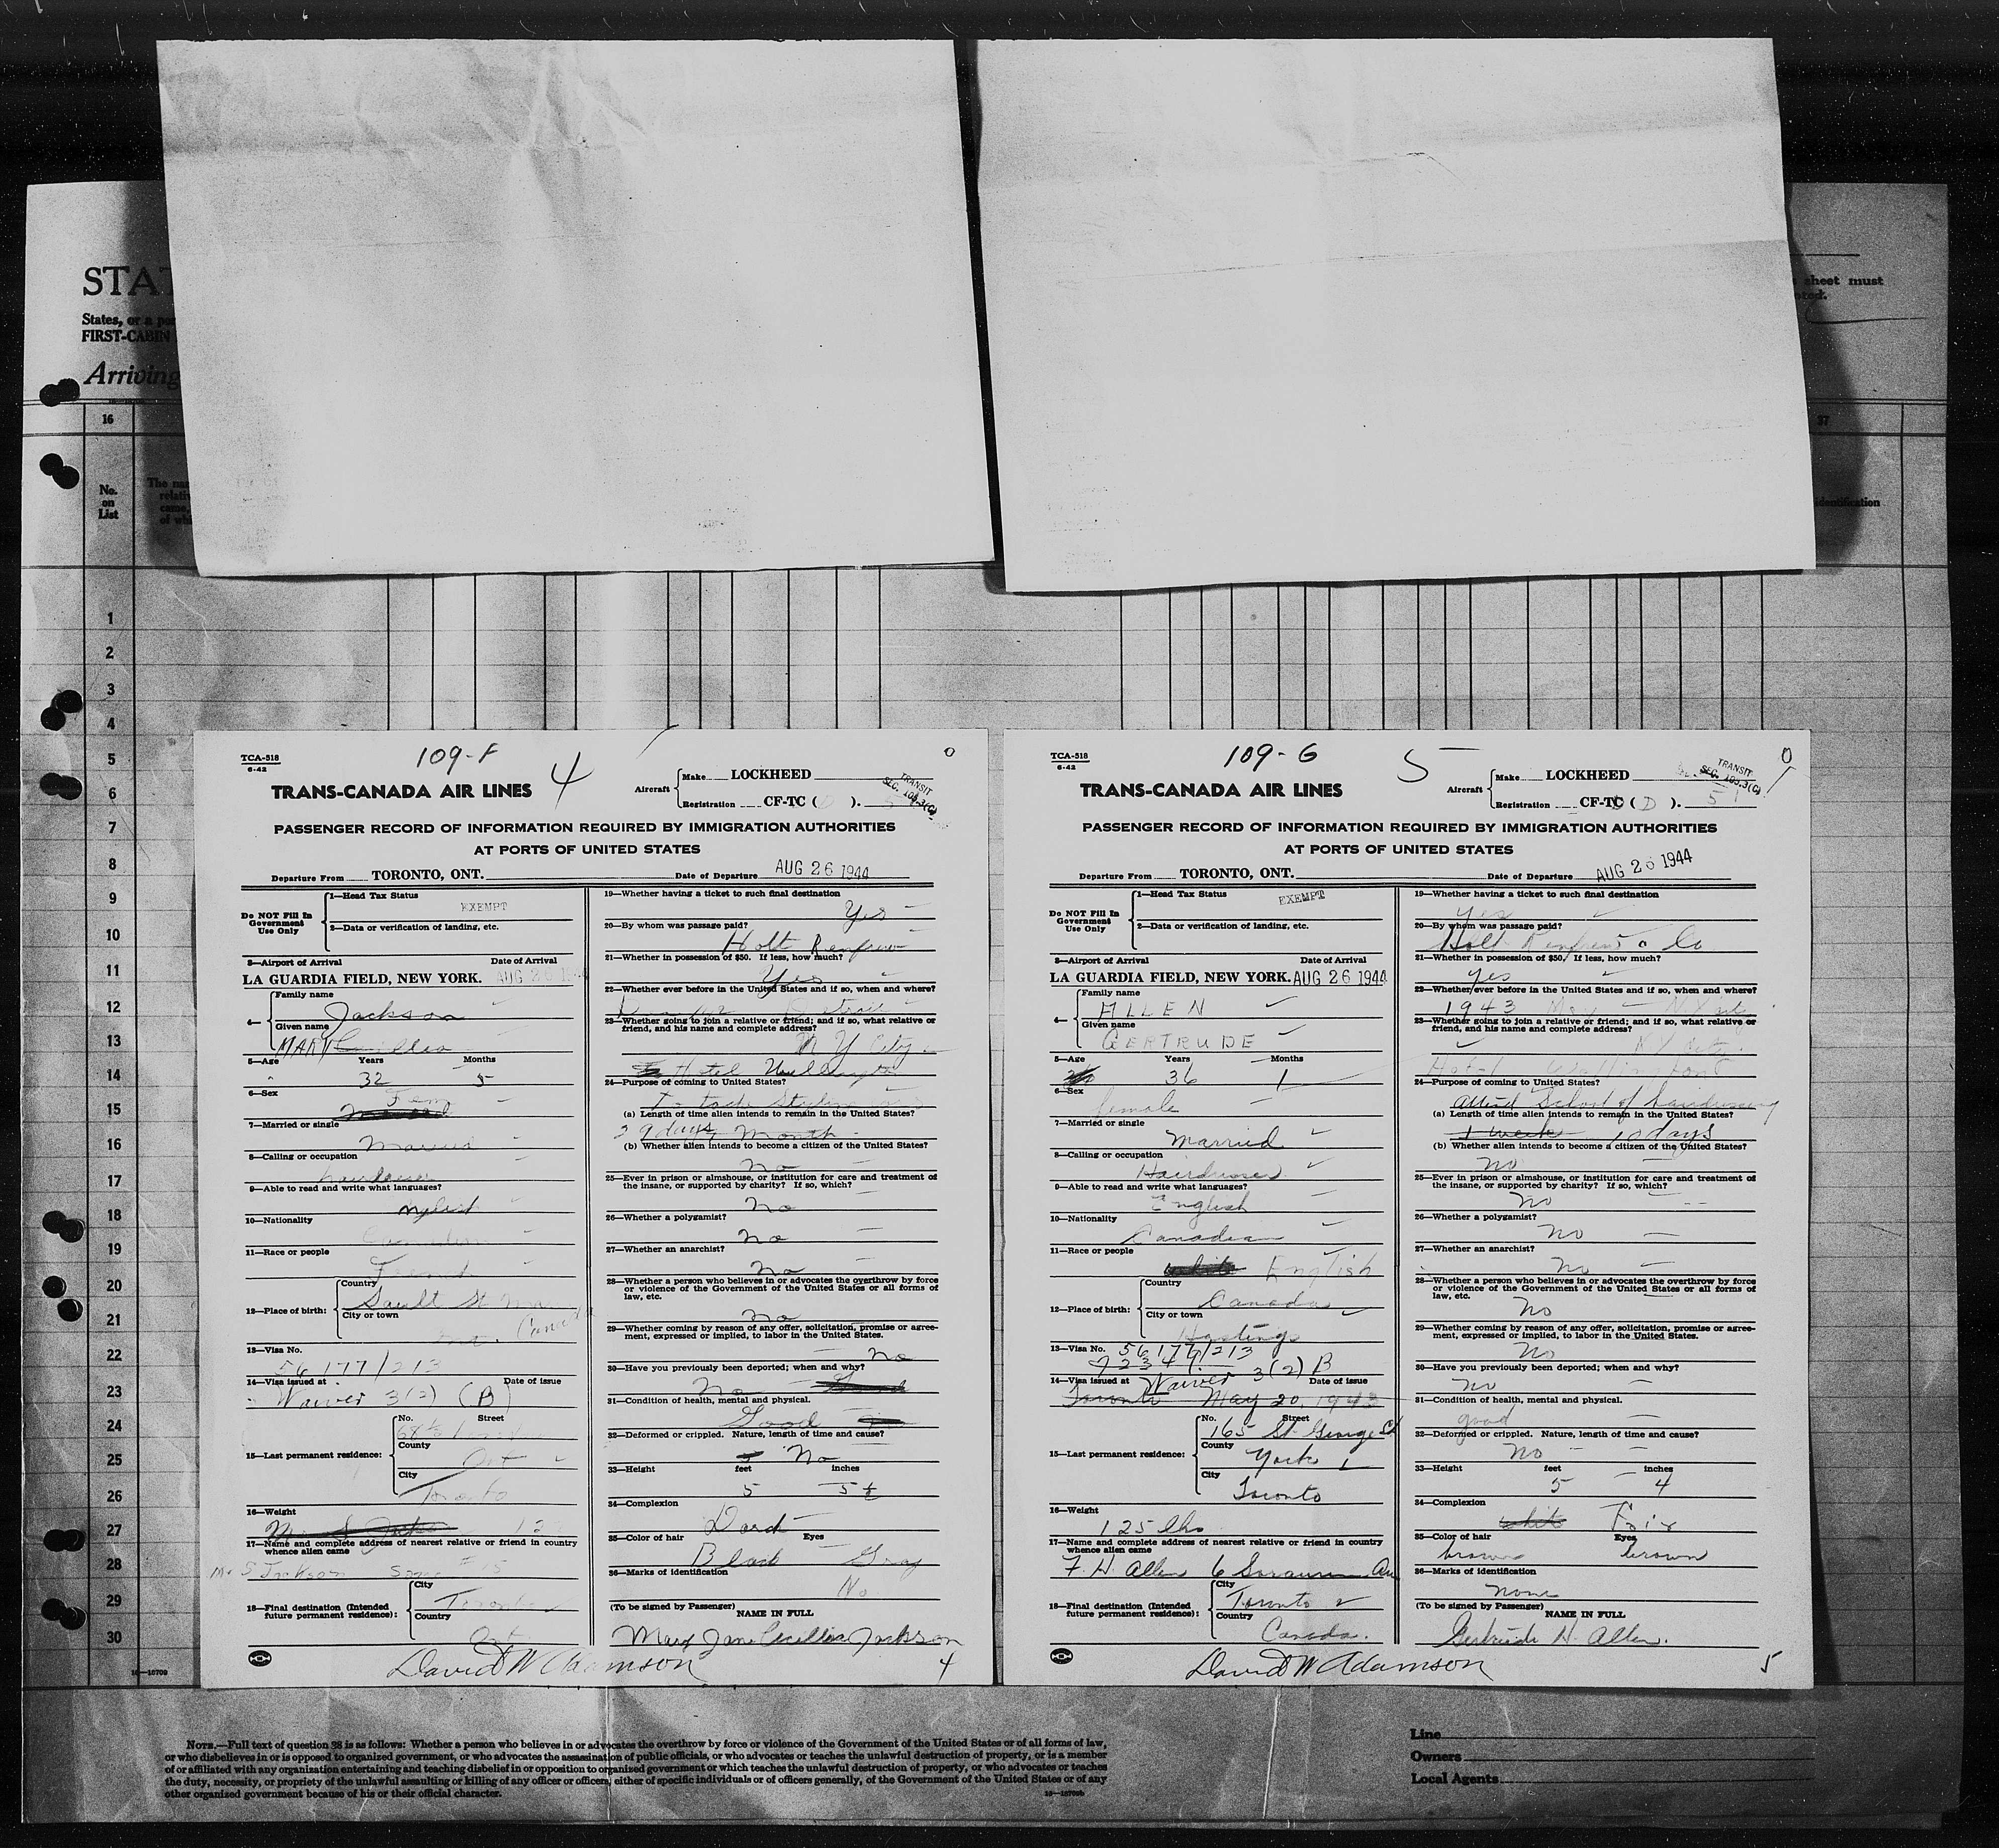 STAT
States, or a por
FIRST-CABIN
Arriving
sheet must
oted.
16
37
No.
on
List
The nam
relativ
came,
of wh
identification
1
2
3
4
5
6
7
8
9
10
11
12
13
14
15
16
17
18
19
20
21
22
23
24
25
26
27
28
29
30
16—18709
TCA-518
6-42
109-F
4
0
TRANS-CANADA AIR LINES
Aircraft
Make LOCKHEED
Registration CF-TC ( ).
TRANSIT
SEC. 109.3(C)
PASSENGER RECORD OF INFORMATION REQUIRED BY IMMIGRATION AUTHORITIES
AT PORTS OF UNITED STATES
Departure From TORONTO, ONT. Date of Departure AUG 26 1944
Do NOT Fill In
Government
Use Only
1—Head Tax Status
EXEMPT
2—Data or verification of landing, etc.
3—Airport of Arrival Date of Arrival
LA GUARDIA FIELD, NEW YORK. AUG 26
4—
Family name
Jackson
Given name
MARY Cecillia
5—Age Years Months
32 5
6—Sex
Fem
7—Married or single
Married
8—Calling or occupation
9—Able to read and write what languages?
10—Nationality
Canadian
11—Race or people
French
12—Place of birth:
Country
Sault St
City or town
Ont. Canada
13—Visa No.
56177/213
14—Visa issued at Date of issue
Waiver 3(2) (B)
15—Last permanent residence:
No. Street
68½
County
Ont
City
Toronto
16—Weight
12
17—Name and complete address of nearest relative or friend in country
whence alien came
Mr S Jackson Same #15
18—Final destination (Intended
future permanent residence):
City
Toronto
Country
Ont
19—Whether having a ticket to such final destination
Yes
20—By whom was passage paid?
Holt Renfrew
21—Whether in possession of $50. If less, how much?
Yes
22—Whether ever before in the United States and if so, when and where?
23—Whether going to join a relative or friend; and if so, what relative or
friend, and his name and complete address?
N Y City
Hotel Wellington
24—Purpose of coming to United States?
(a) Length of time alien intends to remain in the United States?
29 days Month
(b) Whether alien intends to become a citizen of the United States?
no
25—Ever in prison or almshouse, or institution for care and treatment of
the insane, or supported by charity? If so, which?
No
26—Whether a polygamist?
no
27—Whether an anarchist?
no
28—Whether a person who believes in or advocates the overthrow by force
or violence of the Government of the United States or all forms of
law, etc.
no
29—Whether coming by reason of any offer, solicitation, promise or agree-
ment, expressed or implied, to labor in the United States.
no
30—Have you previously been deported; when and why?
No
31—Condition of health, mental and physical.
Good
32—Deformed or crippled. Nature, length of time and cause?
No
33—Height feet inches
5 5½
34—Complexion
Dark
35—Color of hair Eyes
Black Gray
36—Marks of identification
No
(To be signed by Passenger) NAME IN FULL
Mary Jane Cecillia Jackson
David W Adamson
4
TCA-518
6-42
109-G
5
0
TRANS-CANADA AIR LINES
Aircraft
Make LOCKHEED
Registration CF-TC ( D ). 5
TRANSIT
SEC. 109.3(C)
PASSENGER RECORD OF INFORMATION REQUIRED BY IMMIGRATION AUTHORITIES
AT PORTS OF UNITED STATES
Departure From TORONTO, ONT. Date of Departure AUG 26 1944
Do NOT Fill In
Government
Use Only
1—Head Tax Status
EXEMPT
2—Data or verification of landing, etc.
3—Airport of Arrival Date of Arrival
LA GUARDIA FIELD, NEW YORK. AUG 26 1944
4—
Family name
ALLEN
Given name
GERTRUDE
5—Age Years Months
36 1
6—Sex
female
7—Married or single
Married
8—Calling or occupation
Hairdresser
9—Able to read and write what languages?
English
10—Nationality
Canadian
11—Race or people
white English
12—Place of birth:
Country
Canada
City or town
Hastings
13—Visa No. 56177/213
14—Visa issued at Waiver 3(2) B Date of issue
Toronto May 20, 1943
15—Last permanent residence:
No. Street
165 St. George St
County
York
City
Toronto
16—Weight
125 lbs
17—Name and complete address of nearest relative or friend in country
whence alien came
F. H. Allen 6 Sorauren Ave
18—Final destination (Intended
future permanent residence):
City
Toronto
Country
Canada.
19—Whether having a ticket to such final destination
Yes
20—By whom was passage paid?
Holt Renfrew & Co
21—Whether in possession of $50. If less, how much?
Yes
22—Whether ever before in the United States and if so, when and where?
1943
23—Whether going to join a relative or friend; and if so, what relative or
friend, and his name and complete address?
N Y City
Hotel Wellington
24—Purpose of coming to United States?
attend School of hairdressing
(a) Length of time alien intends to remain in the United States?
1 week 10 days
(b) Whether alien intends to become a citizen of the United States?
no
25—Ever in prison or almshouse, or institution for care and treatment of
the insane, or supported by charity? If so, which?
no
26—Whether a polygamist?
no
27—Whether an anarchist?
no
28—Whether a person who believes in or advocates the overthrow by force
or violence of the Government of the United States or all forms of
law, etc.
no
29—Whether coming by reason of any offer, solicitation, promise or agree-
ment, expressed or implied, to labor in the United States.
no
30—Have you previously been deported; when and why?
no
31—Condition of health, mental and physical.
good
32—Deformed or crippled. Nature, length of time and cause?
No
33—Height feet inches
5 4
34—Complexion
white Fair
35—Color of hair Eyes
brown brown
36—Marks of identification
none
(To be signed by Passenger) NAME IN FULL
Gertrude H. Allen.
David W Adamson
5
NOTE.—Full text of question 38 is as follows: Whether a person who believes in or advocates the overthrow by force or violence of the Government of the United States or of all forms of law,
or who disbelieves in or is opposed to organized government, or who advocates the assassination of public officials, or who advocates or teaches the unlawful destruction of property, or is a member
of or affiliated with any organization entertaining and teaching disbelief in or opposition to organized government or which teaches the unlawful destruction of property, or who advocates or teaches
the duty, necessity, or propriety of the unlawful assaulting or killing of any officer or officers, either of specific individuals or of officers generally, of the Government of the United States or of any
other organized government because of his or their official character.
16—18709b
Line
Owners
Local Agents